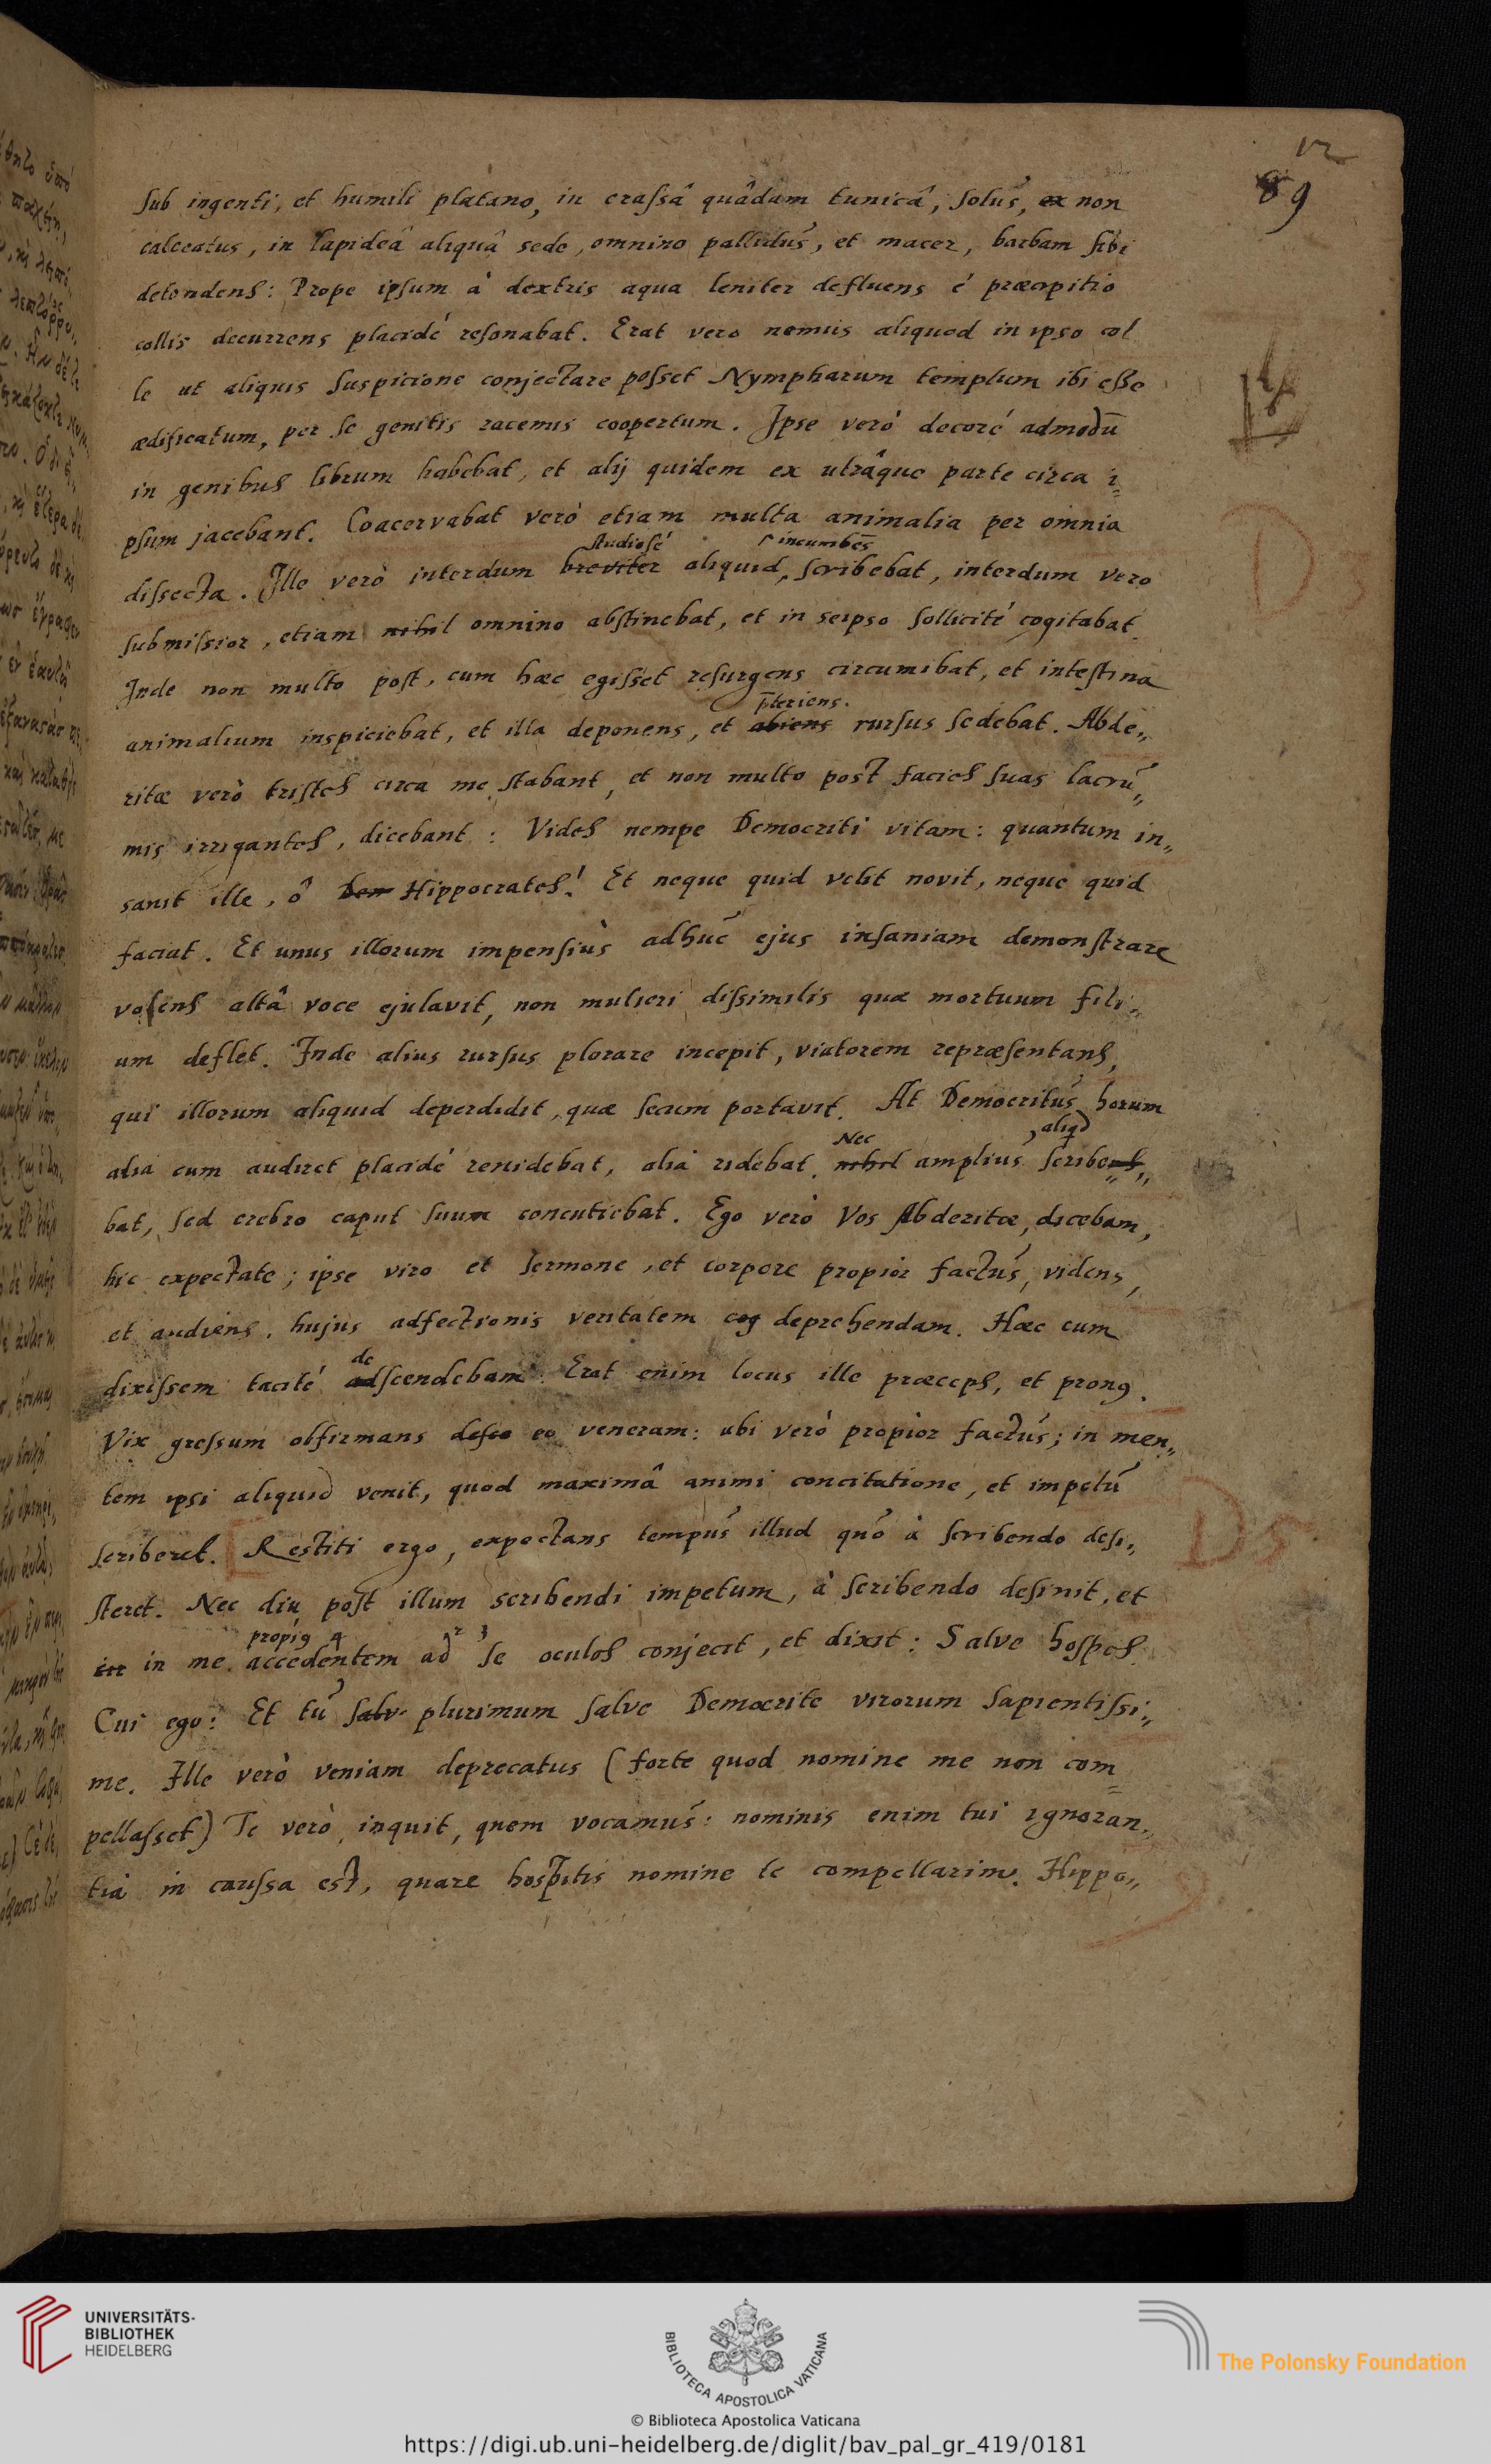 12
89
sub ingenti, et humili platano, in crassâ quâdam tunicâ, solus, ex non
calceatus, in lapideâ aliquâ sede, omnino pallidus, et macer, barbam sibi
detondens: Prope ipsum à dextris aqua leniter defluens é præcipitio
collis decurrens placidé resonabat. Erat vero nemus aliquod in ipso col
le ut aliquis suspicione conjectare posset Nympharum templum ibi esse
ædificatum, per se genitis racemis coopertum. Ipse verò decoré admodū
in genibus librum habebat, et alij quidem ex utrâque parte circa i=
psum jacebant. Coacervabat verò etiam multa animalia per omnia
studiosé incumbēs
dissecta. Ille verò interdum breviter aliquid, scribebat, interdum vero
submissior, etiam nihil omnino abstinebat, et in seipso sollicité cogitabat.
Inde non multo post, cum hæc egisset resurgens circumibat, et intestina
p̄teriens.
animalium inspiciebat, et illa deponens, et abiens rursus sedebat. Abde„
ritæ verò tristes circa me stabant, et non multo post facies suas lacrú„
mis irrigantes, dicebant: Vides nempe Democriti vitam: quantum in„
sanit ille, ô Dem Hippocrates! Et neque quid velit novit, neque quid
faciat. Et unus illorum impensiùs adhuc ejus insaniam demonstrare
volens altâ voce ejulavit, non mulieri dissimilis quæ mortuum fili„
um deflet. Inde alius rursus plorare incepit, viatorem repræsentans,
qui illorum aliquid deperdidit, quæ secum portavit. At Democritus horum
Nec , aliqd
alia cum audiret placidé renidebat, alia ridebat. nihil amplius scribens„
bat, sed crebro caput suum concutiebat. Ego verò Vos Abderitæ, dicebam,
hic expectate; ipse viro et sermone, et corpore propior factus, videns,
et audiens, hujus adfectionis veritatem cog deprehendam. Hæc cum
de
dixissem tacité adscendebam. Erat enim locus ille præceps, et pron9.
Vix gressum obfirmans desce eo veneram: ubi verò propior factus; in men„
tem ipsi aliquid venit, quod maximâ animi concitatione, et impetu
scriberet. Restiti ergo, expectans tempus illud qnō à scribendo desi„
steret. Nec diu post illum scribendi impetum, à scribendo desinit, et
propi9 4 2 3
in in me accedentem ad se oculos conjecit, et dixit: Salve hospes.
Cui ego: Et tu salv plurimum salve Democrite virorum sapientissi„
me. Ille verò veniam deprecatus (forte quod nomine me non com=
pellasset) Te verò, inquit, quem vocamus: nominis enim tui ignoran„
tia in caussa est, quare hospitis nomine te compellarim. Hippo„
D 5
UNIVERSITÄTS-
BIBLIOTHEK
HEIDELBERG
BIBLIOTECA APOSTOLICA VATICANA
The Polonsky Foundation
© Biblioteca Apostolica Vaticana
https://digi.ub.uni-heidelberg.de/diglit/bav_pal_gr_419/0181